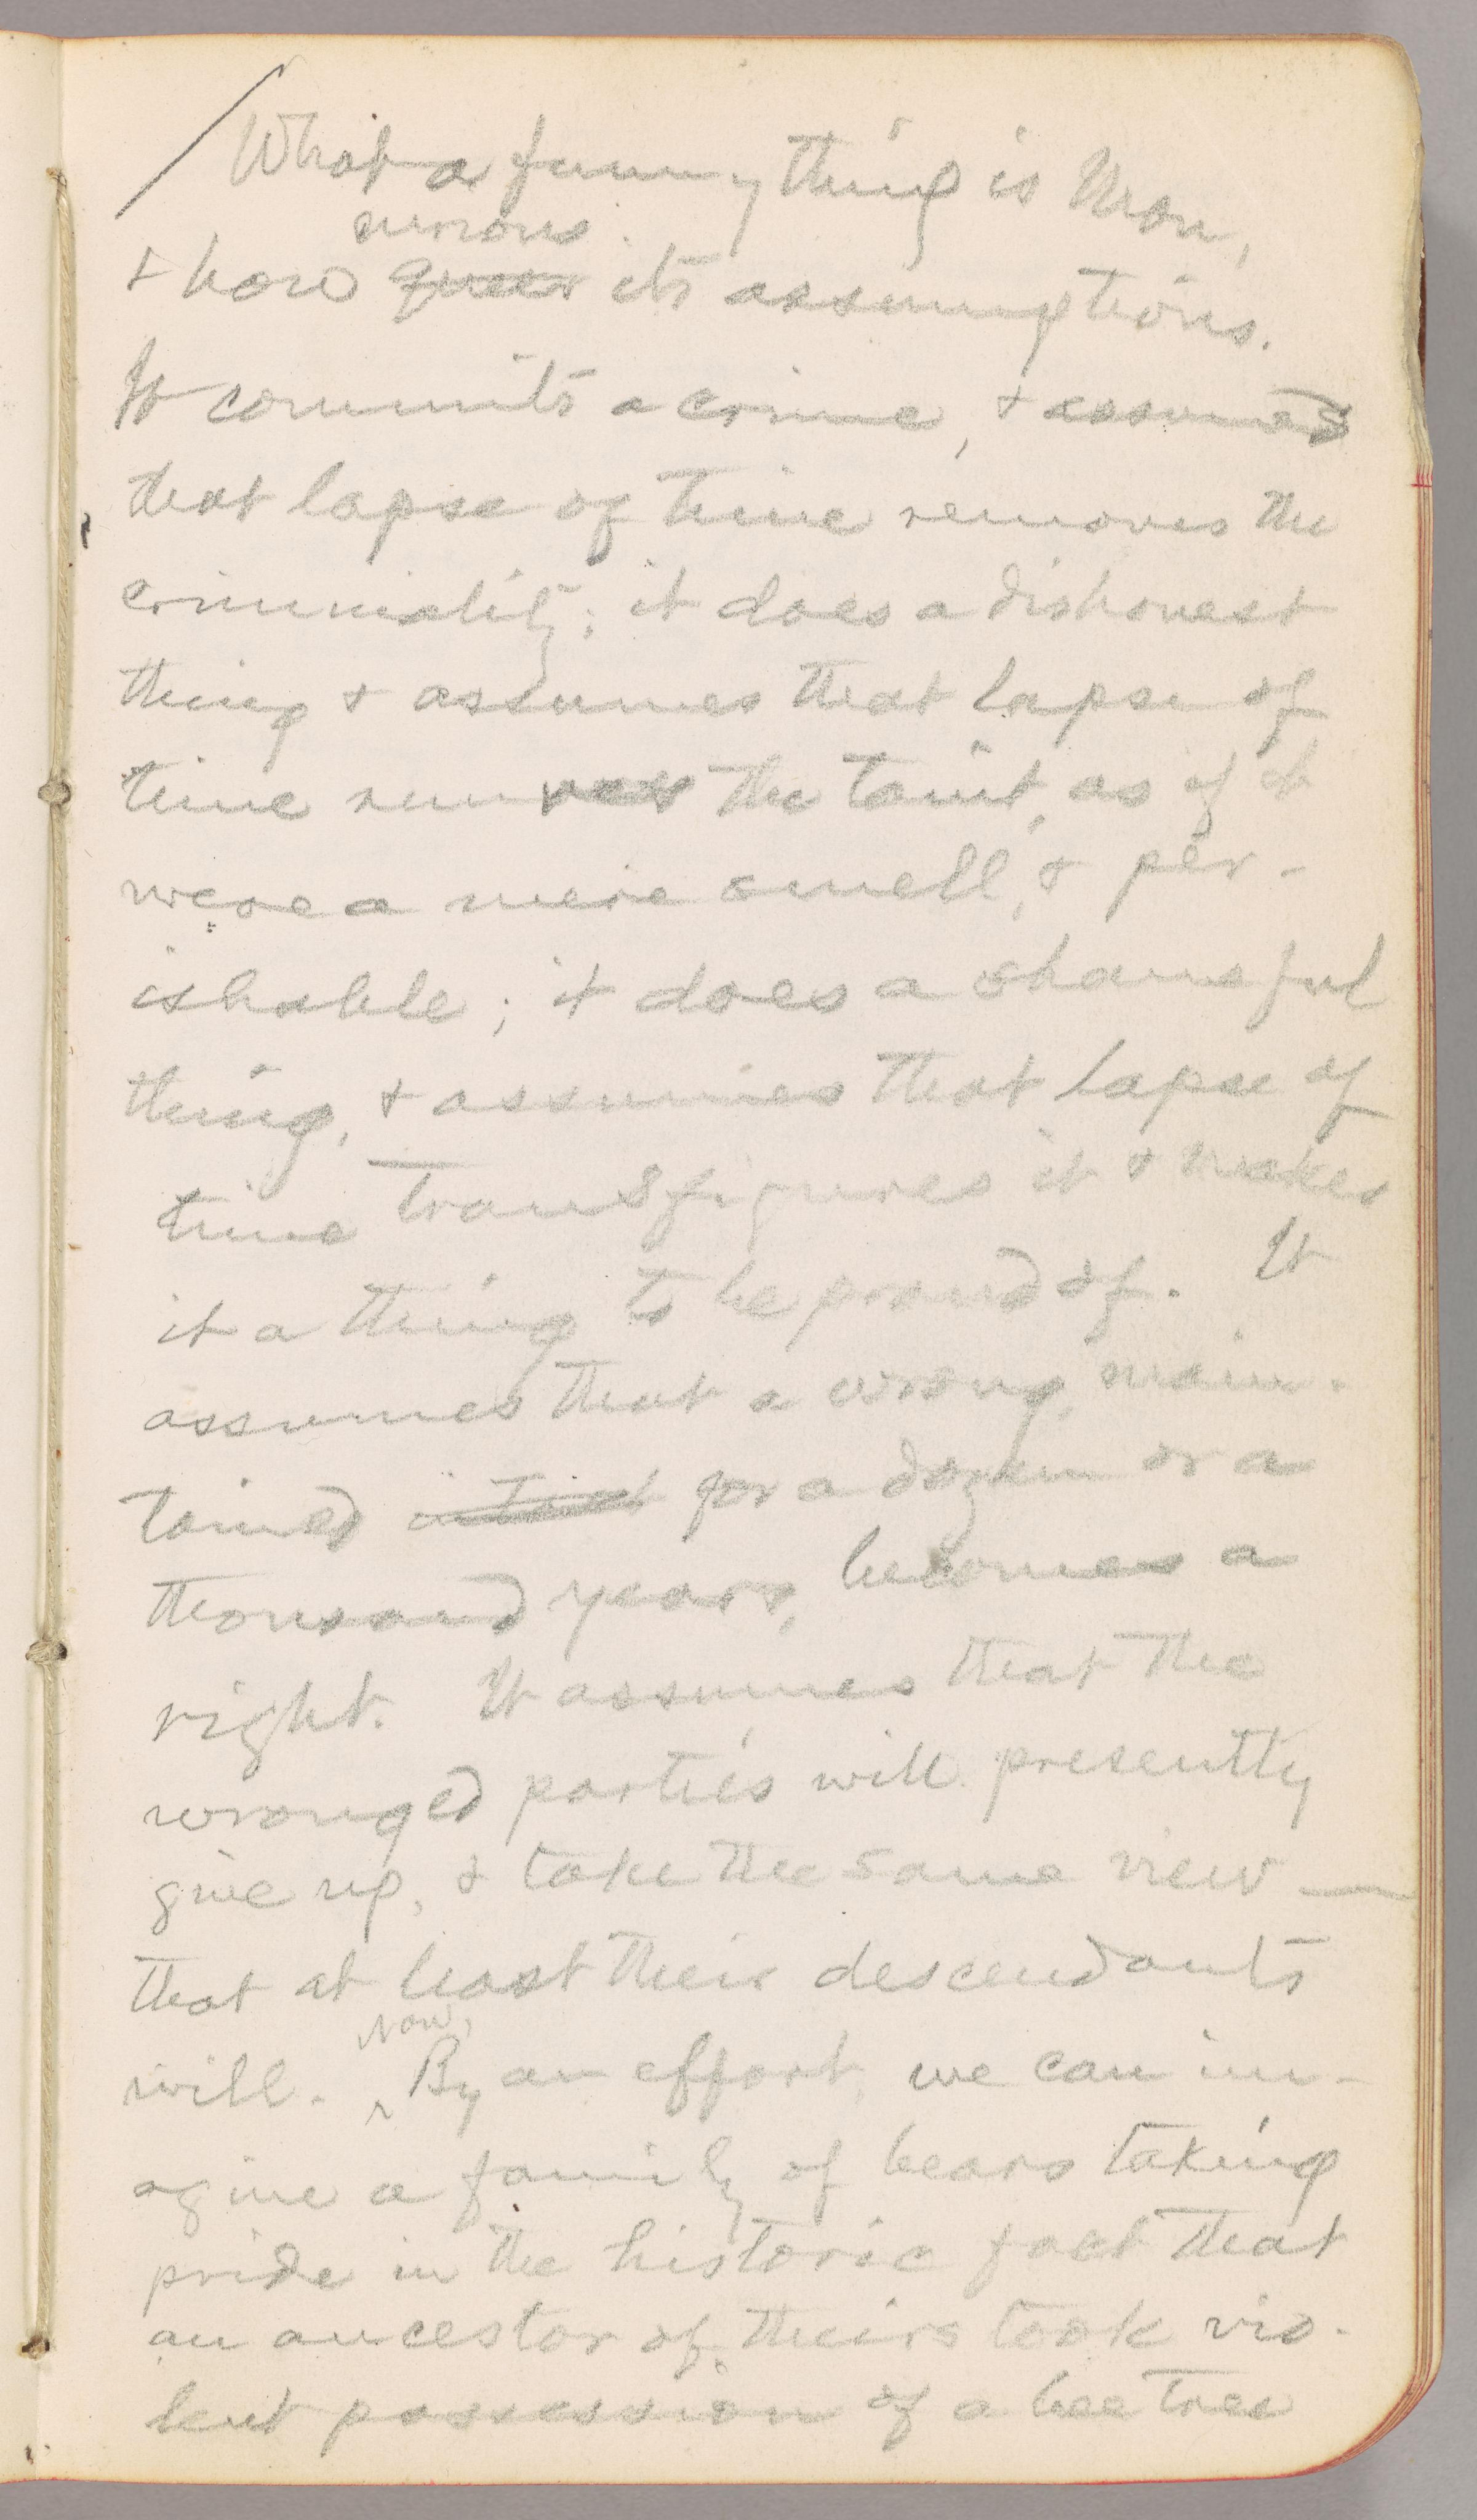 What a funny thing is Man,
curious
& how queer its assumptions.
It commits a crime, & assumes
that lapse of time removes the
criminality; it does a dishonest
thing & assumes that lapse of
time removes the taint, as if it
were a mere smell, & per-
ishable; it does a shameful
thing, & assumes that lapse of
time transfigures it & makes
it a thing to be proud of. It
assumes that a wrong, main-
tained intact for a dozen or a
thousand years, becomes a
right. It assumes that the
wronged parties will presently
give up, & take the same view —
that at least their descendants
Now,
will. By an effort, we can im-
agine a family of bears taking
pride in the historic fact that
an ancestor of theirs took vio-
lent possession of a bee tree